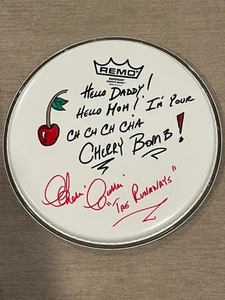 REMO
EMPEROR
HELLO DADDY!
HELLO MOM! I'M YOUR
CH CH CH CHA
CHERRY BOMB!
Cherie Currie
"THE RUNAWAYS"